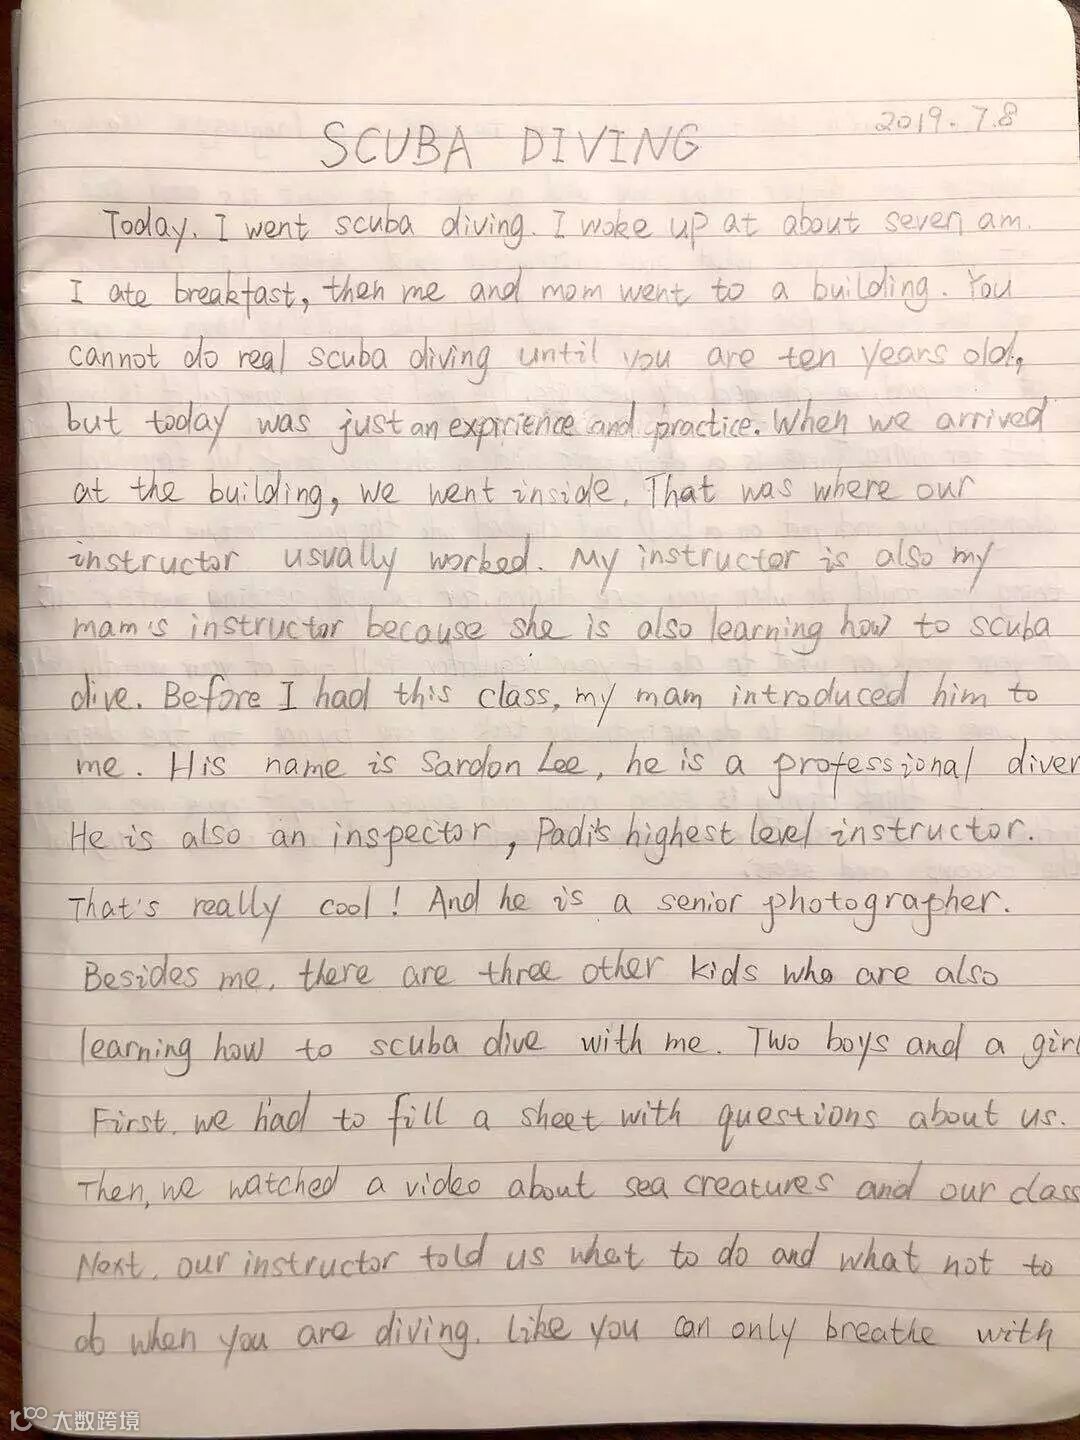 2019. 7.8
SCUBA DIVING
Today. I went scuba diving. I woke up at about seven am.
I ate breakfast, then me and mom went to a building. You
cannot do real scuba diving until you are ten years old,
but today was just an exprience and practice. When we arrived
at the building, we went inside. That was where our
instructor usually worked. My instructor is also my
mam's instructor because she is also learning how to scuba
dive. Before I had this class, my mam introduced him to
me. His name is Sardon Lee, he is a professional diver
He is also an inspector, Padi's highest level instructor.
That's really cool! And he is a senior photographer.
Besides me, there are three other kids who are also
learning how to scuba dive with me. Two boys and a girl
First, we had to fill a sheet with questions about us.
Then, we watched a video about sea creatures and our class
Next, our instructor told us what to do and what not to
do when you are diving. Like you can only breathe with
大数跨境